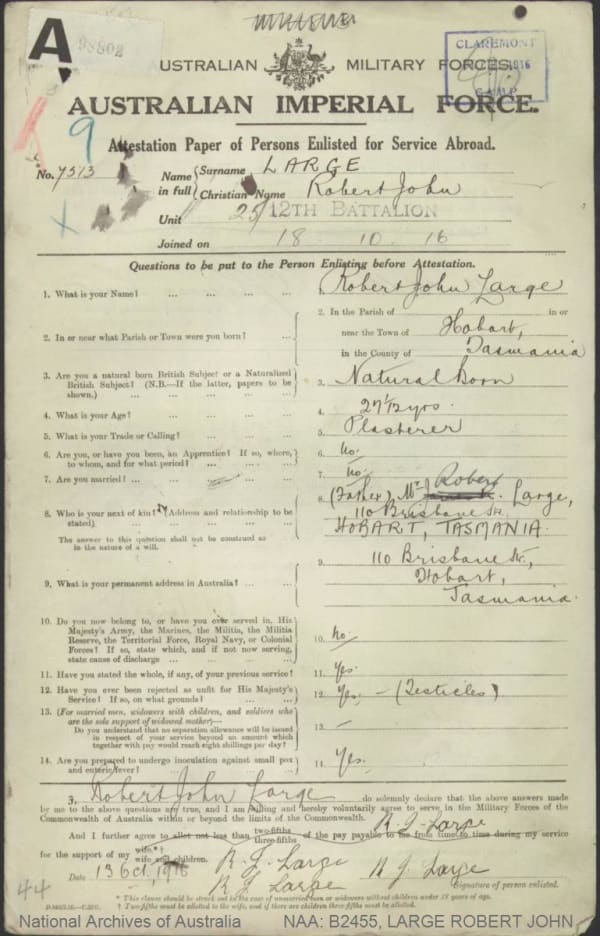 A
CLAREMONT
1916
CAMP
AUSTRALIAN MILITARY FORCES.
AUSTRALIAN IMPERIAL FORCE.
Attestation Paper of Persons Enlisted for Service Abroad.
9
No. 7513
Name in full
Surname LARGE
Christian Name Robert John
Unit 25/12TH BATTALION
Joined on 18 10 16
Questions to be put to the Person Enlisting before Attestation.
1. What is your Name? ... ... ... ... 1. Robert John Large
2. In or near what Parish or Town were you born? ... 2. In the Parish of in or
near the Town of Hobart,
in the County of Tasmania
3. Are you a natural born British Subject or a Naturalized
British Subject? (N.B.—If the latter, papers to be
shown.) ... ... ... 3. Natural Born
4. What is your Age? ... ... ... 4. 27 1/12 yrs.
5. What is your Trade or Calling? ... ... 5. Plasterer
6. Are you, or have you been, an Apprentice? If so, where,
to whom, and for what period? ... ... ... 6. No.
7. Are you married? ... ... ... 7. No.
8. Who is your next of kin? (Address and relationship to be
stated) ... ... ... 8. (Father) Mr Robert Large,
110 Brisbane St.
HOBART, TASMANIA.
The answer to this question shall not be construed as
in the nature of a will.
9. What is your permanent address in Australia? ... ... 9. 110 Brisbane St.,
Hobart,
Tasmania.
10. Do you now belong to, or have you ever served in, His
Majesty's Army, the Marines, the Militia, the Militia
Reserve, the Territorial Force, Royal Navy, or Colonial
Forces? If so, state which, and if not now serving,
state cause of discharge ... ... ... 10. No.
11. Have you stated the whole, if any, of your previous service? 11. Yes.
12. Have you ever been rejected as unfit for His Majesty's
Service? If so, on what grounds? ... ... 12. Yes. — (Testicles)
13. (For married men, widowers with children, and soldiers who
are the sole support of widowed mother)—
Do you understand that no separation allowance will be issued
in respect of your service beyond an amount which
together with pay would reach eight shillings per day? 13. —
14. Are you prepared to undergo inoculation against small pox
and enteric fever? ... ... ... 14. Yes.
I, Robert John Large do solemnly declare that the above answers made
by me to the above questions are true, and I am willing and hereby voluntarily agree to serve in the Military Forces of the
Commonwealth of Australia within or beyond the limits of the Commonwealth.
R. J. Large
And I further agree to allot not less than two-fifths three-fifths of the pay payable to me from time to time during my service
for the support of my wife* wife and children.
R. J. Large
Date 13 Oct, 1916
R J Large
R J Large
Signature of person enlisted.
44
* This clause should be struck out in the case of unmarried men or widowers without children under 18 years of age.
† Two-fifths must be allotted to the wife, and if there are children three-fifths must be allotted.
National Archives of Australia
NAA: B2455, LARGE ROBERT JOHN